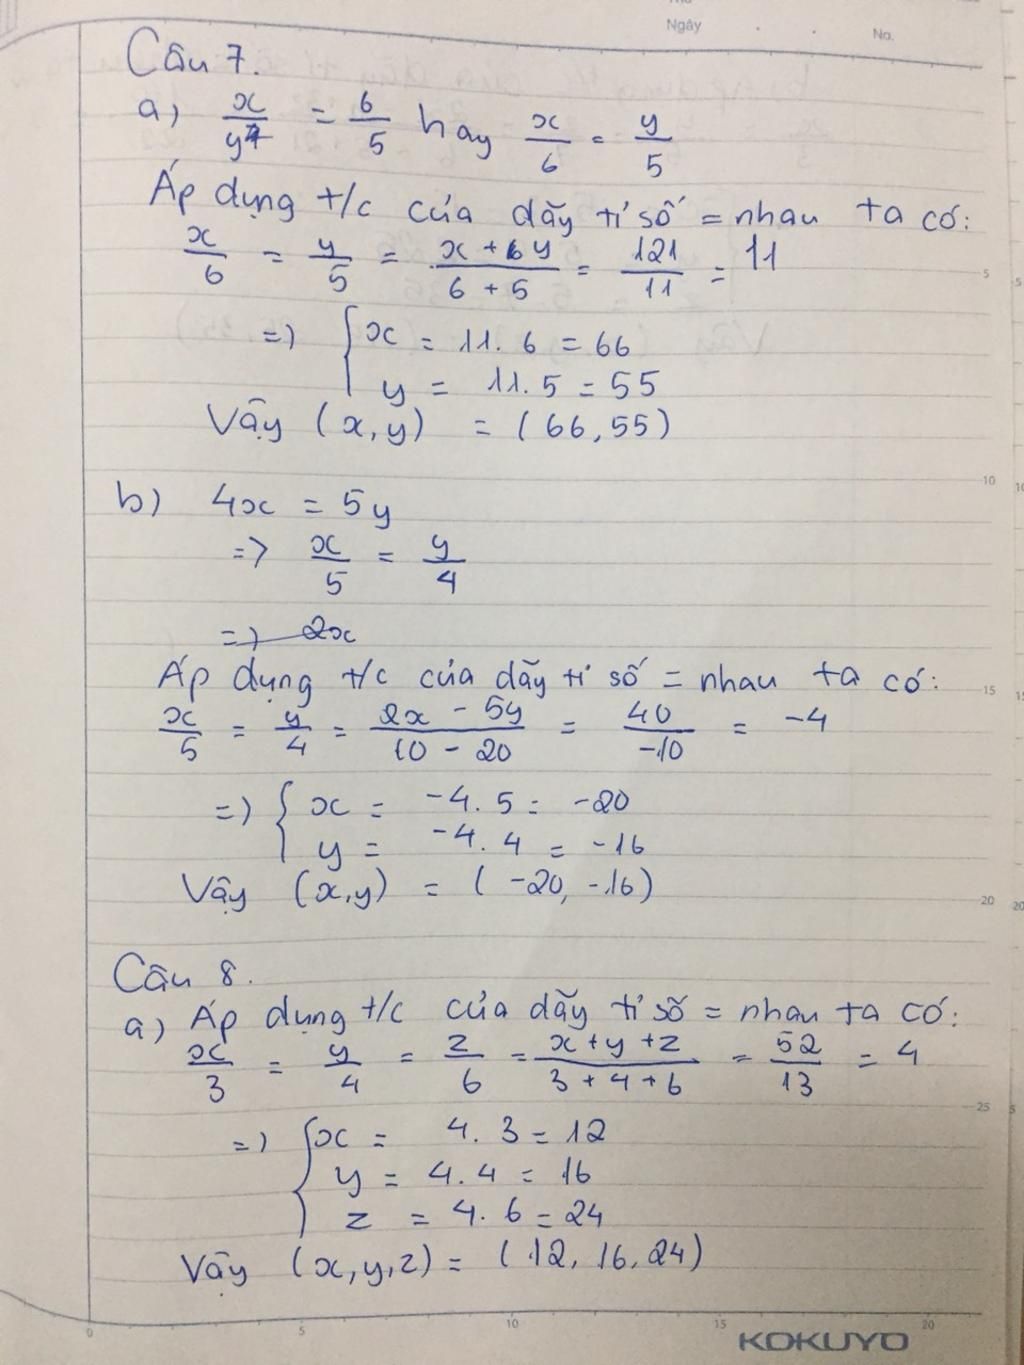 Ngày No.
Câu 7.
a) x/y = 6/5 hay x/6 = y/5
Áp dụng t/c của dãy tỉ số = nhau ta có:
x/6 = y/5 = (x + y)/(6 + 5) = 121/11 = 11
=> { x = 11.6 = 66
y = 11.5 = 55
Vậy (x,y) = (66,55)
b) 4x = 5y
=> x/5 = y/4
=> 2x
Áp dụng t/c của dãy tỉ số = nhau ta có:
x/5 = y/4 = (2x - 5y)/(10 - 20) = 40/-10 = -4
=> { x = -4.5 = -20
y = -4.4 = -16
Vậy (x,y) = (-20, -16)
Câu 8.
a) Áp dụng t/c của dãy tỉ số = nhau ta có:
x/3 = y/4 = z/6 = (x + y + z)/(3 + 4 + 6) = 52/13 = 4
=> { x = 4.3 = 12
y = 4.4 = 16
z = 4.6 = 24
Vậy (x,y,z) = (12, 16, 24)
5
10
15
20
25
0 5 10 15 20
KOKUYO